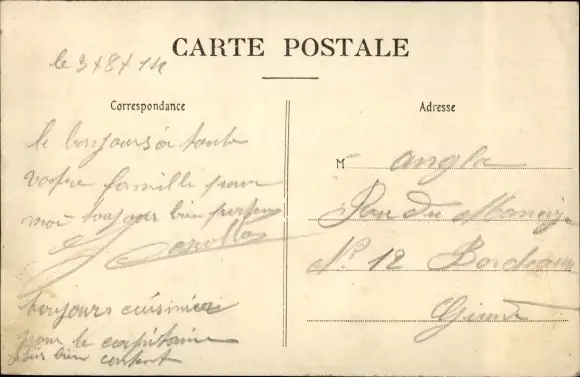 CARTE POSTALE
le 3+8+14
Correspondance
le bonjours à toute
votre famille pour
moi toujour bien portan
toujours cuisinier
pour le capitaine
suis bien content
Adresse
M angla
Rue du Manège
N° 12 Bordeaux
Gironde